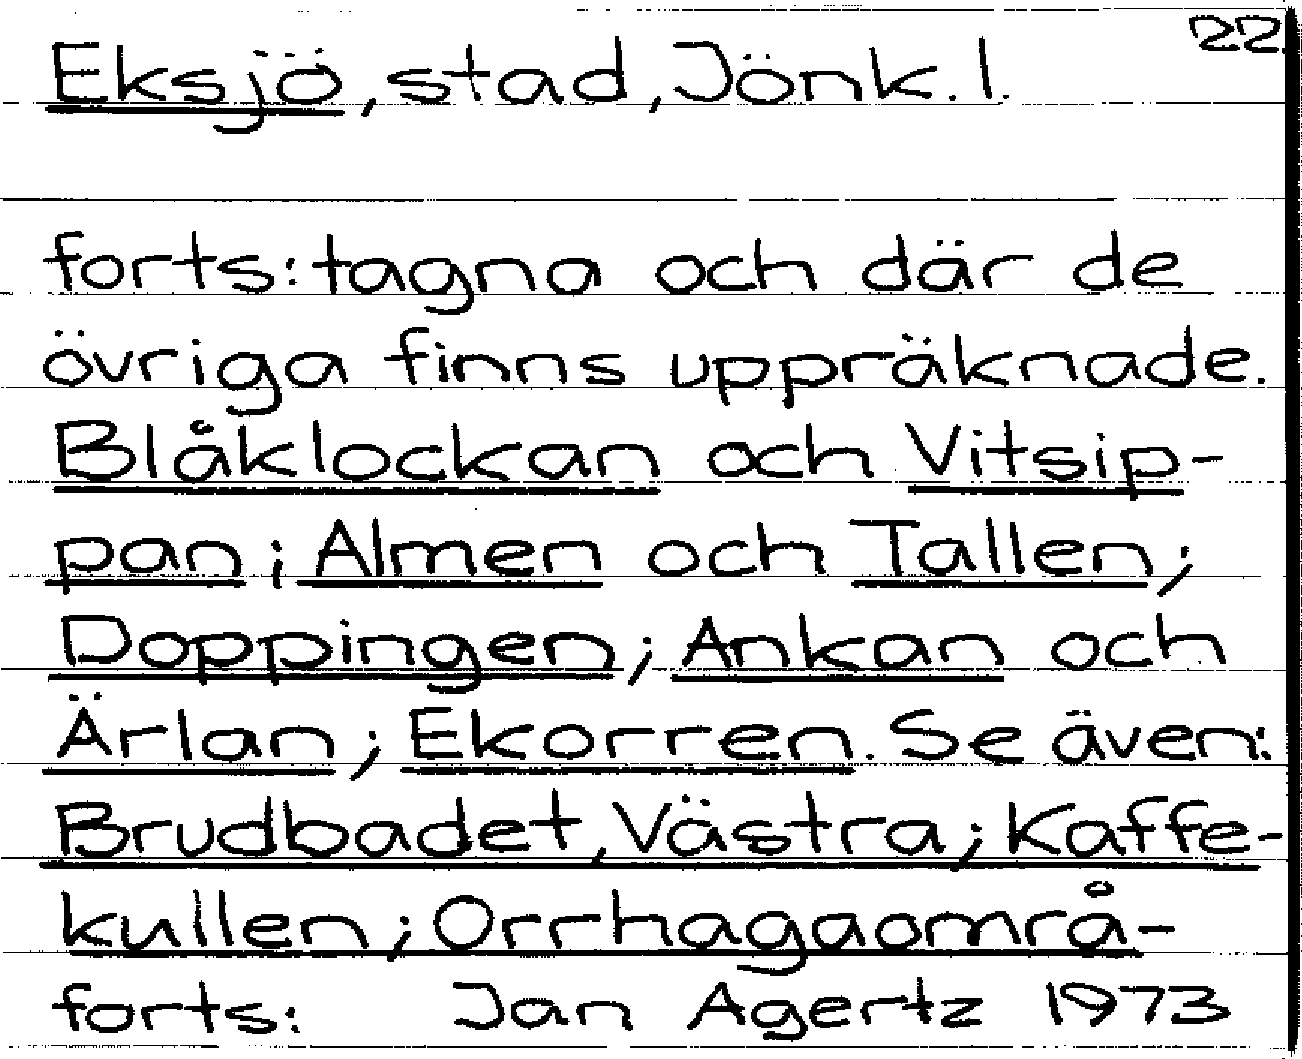 22
Eksjö, stad, Jönk. l.
forts: tagna och där de
övriga finns uppräknade.
Blåklockan och Vitsip-
pan; Almen och Tallen;
Doppingen; Ankan och
Ärlan; Ekorren. Se även:
Brudbadet, Västra; Kaffe-
kullen; Orrhagaområ-
forts: Jan Agertz 1973